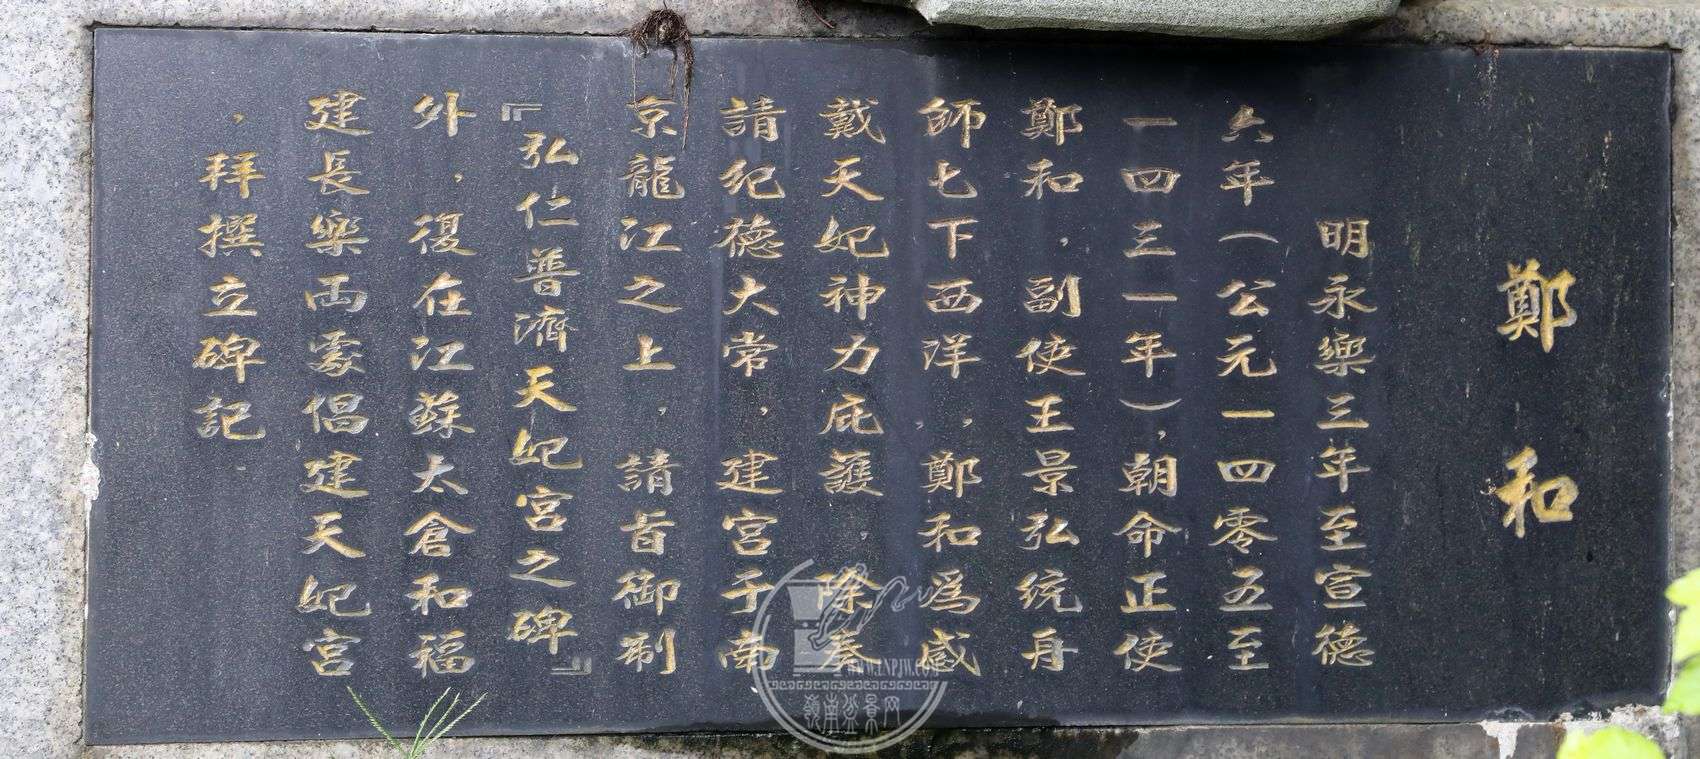 鄭和
明永樂三年至宣德
六年（公元一四零五至
一四三一年），朝命正使
鄭和，副使王景弘統舟
師七下西洋，鄭和爲感
戴天妃神力庇護，除奏
請紀德大常，建宮于南
京龍江之上，請旨御制
『弘仁普濟天妃宮之碑』
外，復在江蘇太倉和福
建長樂兩處倡建天妃宮
，拜撰立碑記.
WWW.LNPJW.COM
嶺南盆景网